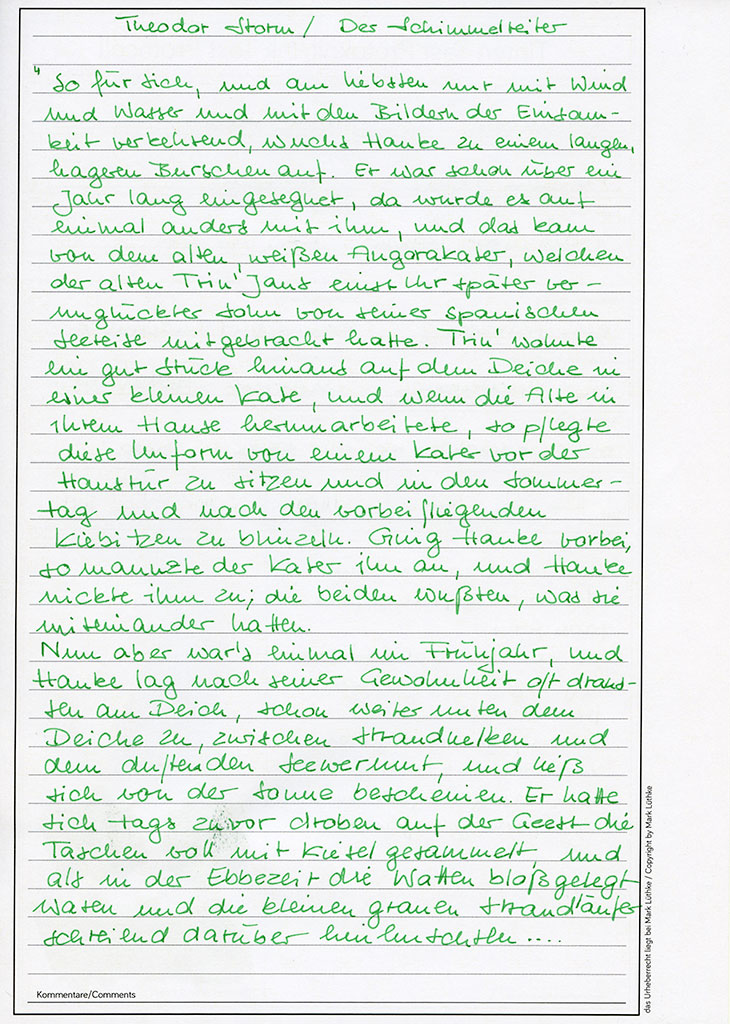 Theodor Storm / Der Schimmelreiter
" So für sich, und am liebsten nur mit Wind
und Wasser und mit den Bildern der Einsam-
keit verkehrend, wuchs Hauke zu einem langen,
hageren Burschen auf. Er war schon über ein
Jahr lang eingesegnet, da wurde es auf
einmal anders mit ihm, und das kam
von dem alten, weißen Angorakater, welchen
der alten Trin' Jans einst ihr später ver-
unglückter Sohn von seiner spanischen
Seereise mitgebracht hatte. Trin' wohnte
ein gut Stück hinaus auf dem Deiche in
einer kleinen Kate, und wenn die Alte in
ihrem Hause herumarbeitete, so pflegte
diese Unform von einem Kater vor der
Haustür zu sitzen und in den Sommer-
tag und nach den vorbeifliegenden
Kiebitzen zu blinzeln. Ging Hauke vorbei,
so mauzte der Kater ihn an, und Hauke
nickte ihm zu; die beiden wußten, was sie
miteinander hatten.
Nun aber war's einmal im Frühjahr, und
Hauke lag nach seiner Gewohnheit oft drau-
ßen am Deich, schon weiter unten dem
Deiche zu, zwischen Strandnelken und
dem duftenden Seewermut, und ließ
sich von der Sonne bescheinen. Er hatte
sich tags zuvor droben auf der Geest die
Taschen voll mit Kiesel gesammelt, und
als in der Ebbezeit die Watten bloßgelegt
waren und die kleinen grauen Strandläufer
schreiend darüber hinhuschten ....
Kommentare/Comments
das Urheberrecht liegt bei Mark Lüthke / Copyright by Mark Lüthke